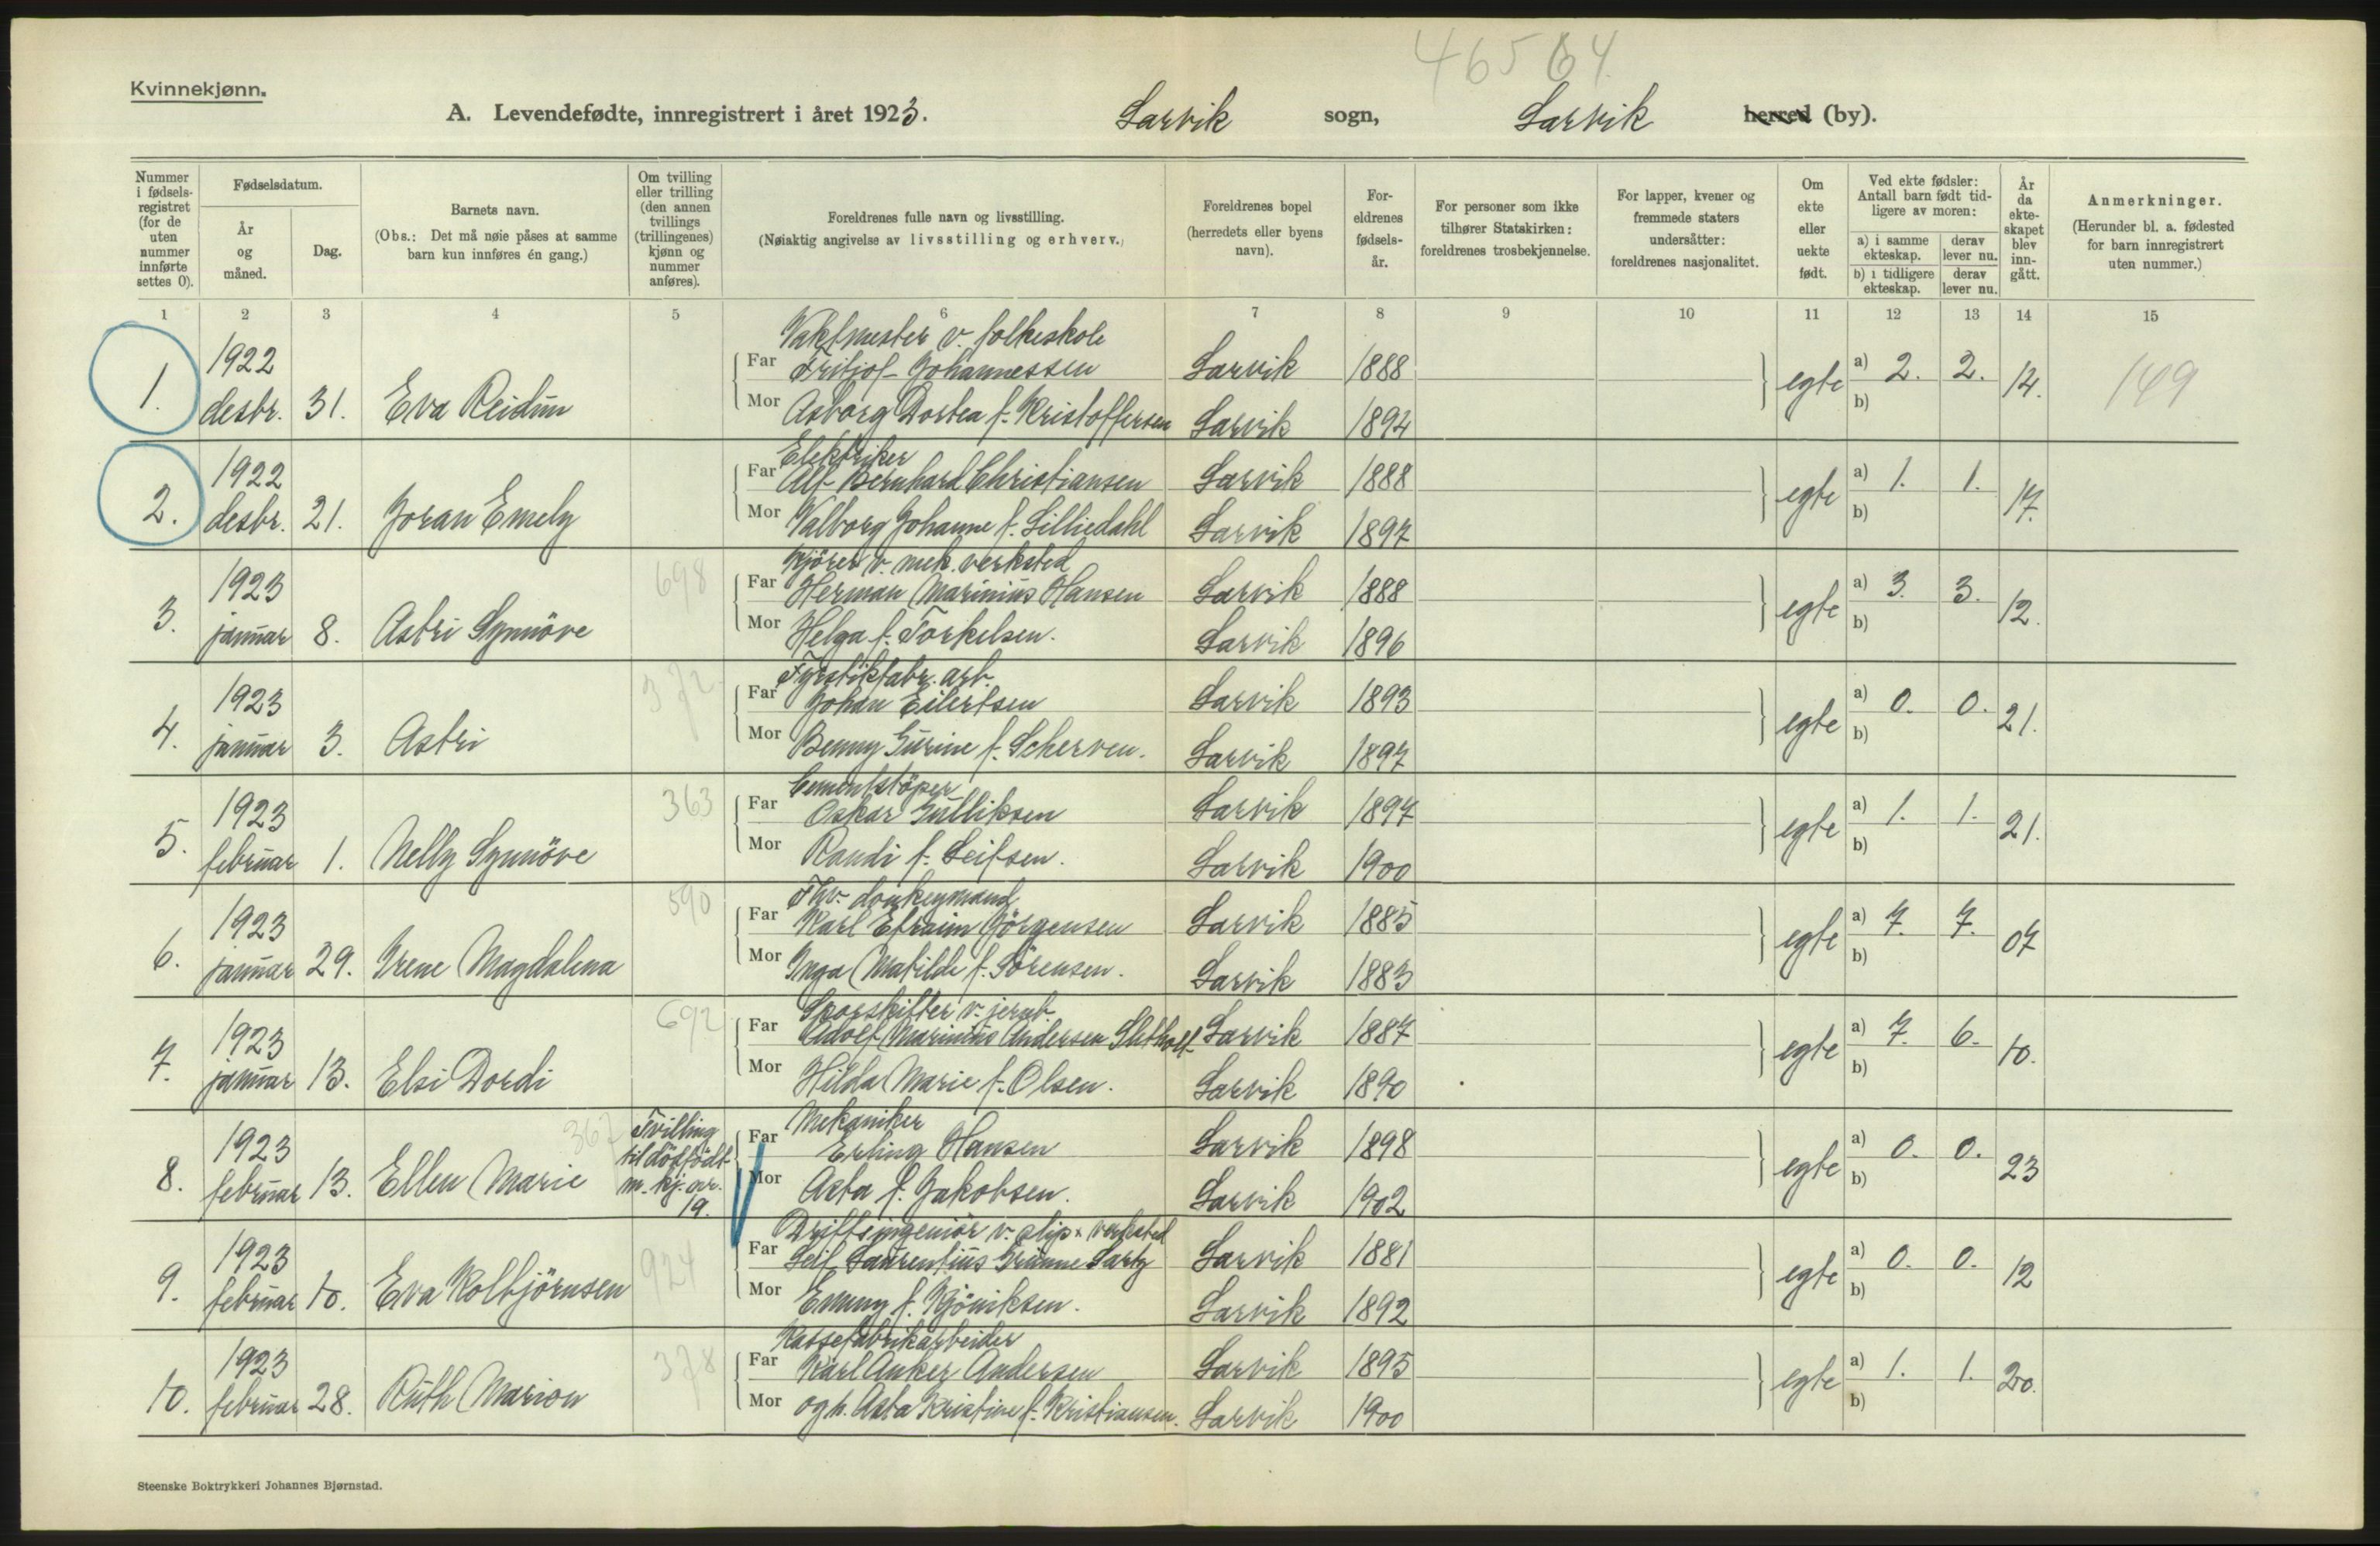 46564
Kvinnekjønn.
A. Levendefødte, innregistrert i året 1923. Larvik sogn, Larvik herred (by).
Nummer i fødsels-registret (for de uten nummer innførte settes 0).
Fødselsdatum.
År og måned.
Dag.
Barnets navn.
(Obs.: Det må nøie påses at samme barn kun innføres én gang.)
Om tvilling eller trilling (den annen tvillings (trillingenes) kjønn og nummer anføres).
Foreldrenes fulle navn og livsstilling.
(Nøiaktig angivelse av livsstilling og erhverv.)
Foreldrenes bopel (herredets eller byens navn).
For-eldrenes fødsels-år.
For personer som ikke tilhører Statskirken: foreldrenes trosbekjennelse.
For lapper, kvener og fremmede staters undersåtter: foreldrenes nasjonalitet.
Om ekte eller uekte født.
Ved ekte fødsler: Antall barn født tid-ligere av moren:
a) i samme ekteskap. derav lever nu.
b) i tidligere ekteskap. derav lever nu.
År da ekte-skapet blev inn-gått.
Anmerkninger.
(Herunder bl. a. fødested for barn innregistrert uten nummer.)
1 2 3 4 5 6 7 8 9 10 11 12 13 14 15
Vaktmester v. folkeskole
1. 1922 desbr. 31. Eva Reidun Far Fritjof Johannessen Larvik 1888 egte a) 2. 2. 14. 149
Mor Asborg Dortea f. Kristoffersen Larvik 1894 b)
Elektriker
2. 1922 desbr. 21. Joran Emely Far Alf Bernhard Christiansen Larvik 1888 egte a) 1. 1. 17.
Mor Valborg Johanne f. Lilliedahl Larvik 1897 b)
Kjörer v. mek. verksted
3. 1923 januar 8. Astri Synnöve 698 Far Herman Marinius Hansen Larvik 1888 egte a) 3. 3. 12.
Mor Helga f. Torkelsen. Larvik 1896 b)
Fyrstikfabr. arb.
4. 1923 januar 3. Astri 372 Far Johan Eilertsen Larvik 1893 egte a) 0. 0. 21.
Mor Benny Gurine f. Scherven. Larvik 1897 b)
Cementstöper
5. 1923 februar 1. Nelly Synnöve 363 Far Oskar Gulliksen Larvik 1897 egte a) 1. 1. 21.
Mor Randi f. Leifsen. Larvik 1900 b)
Fhv. donkeymand
6. 1923 januar 29. Irene Magdalena 590 Far Karl Efraim Jörgensen Larvik 1885 egte a) 7. 7. 07
Mor Inga Matilde f. Sörensen. Larvik 1883 b)
Sporskifter v. jernb.
7. 1923 januar 13. Elsi Dordi 692 Far Adolf Marinius Andersen Sletholt Larvik 1887 egte a) 7. 6. 10.
Mor Hilda Marie f. Olsen. Larvik 1890 b)
Mekaniker
8. 1923 februar 13. Ellen Marie 367 Tvilling til dödfödt m. kj. nr. 19. Far Erling Hansen Larvik 1898 egte a) 0. 0. 23
Mor Asta f. Jakobsen. Larvik 1902 b)
Driftsingeniör v. slip & verksted
9. 1923 februar 10. Eva Kolbjörnsen 924 Far Leif Laurentius Grånne Larty Larvik 1881 egte a) 0. 0. 12
Mor Emmy f. Kjöniksen. Larvik 1892 b)
Kassefabrikarbeider
10. 1923 februar 28. Ruth Marion 378 Far Karl Anker Andersen Larvik 1895 egte a) 1. 1. 20.
Mor og h. Asta Kristine f. Kristiansen. Larvik 1900 b)
Steenske Boktrykkeri Johannes Bjørnstad.